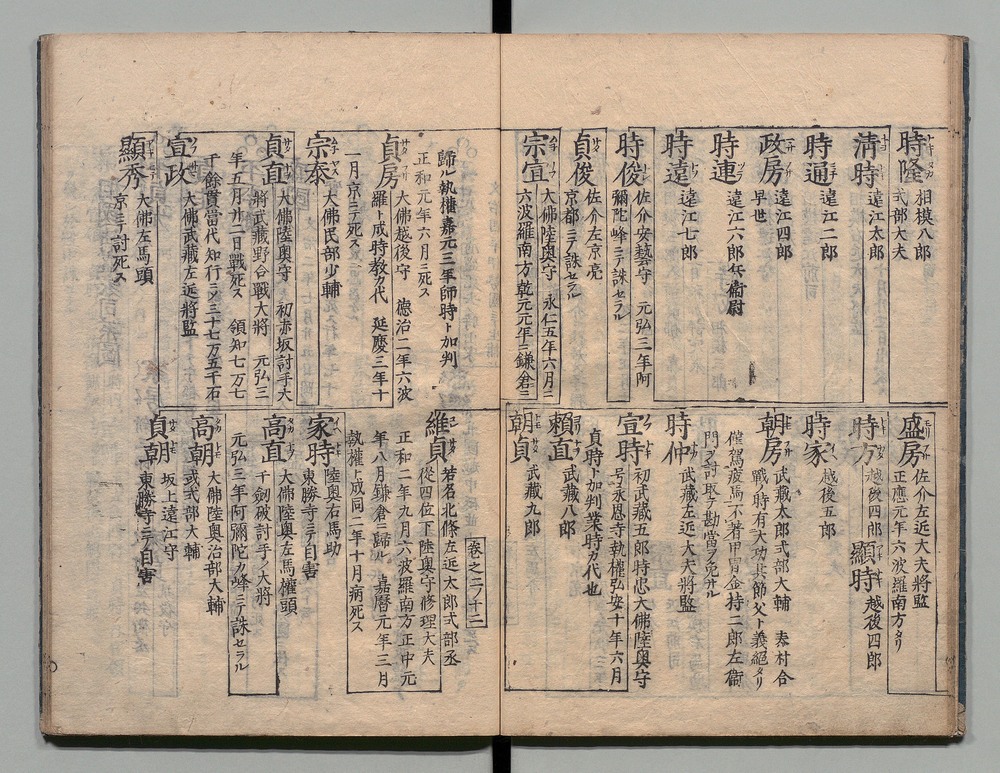 時隆 相模八郎
式部大夫
清時 遠江太郎
時通 遠江二郎
政房 遠江四郎
早世
時連 遠江六郎兵衞尉
時遠 遠江七郎
時俊 佐介安藝守 元弘三年阿
彌陀峰ニテ誅セラル
貞俊 佐介左京亮
京都ニテ誅セラル
宗宣 大佛陸奥守 永仁五年六月ニ
六波羅南方乾元元年ニ鎌倉ニ
盛房 佐介左近大夫將監
正應元年六波羅南方タリ
時方 越後四郎 顯時 越後四郎
時家 越後五郎
朝房 武藏太郎式部大輔 泰村合
戰ノ時有大功其節父ト義絕タリ
催駕疲馬不著甲冑金持二郎左衞
門ヲ討取テ勘當ヲ免サル
時仲 武藏左近大夫將監
宣時 初武藏五郎時忠大佛陸奥守
号永恩寺執權弘安十年六月
貞時ト加判業時カ代也
賴直 武藏八郎
朝貞 武藏九郎
歸ル執權嘉元三年師時ト加判
正和元年六月ニ死ス
貞房 大佛越後守 德治二年六波
羅ト成時敎カ代 延慶三年十
一月京ニテ死ス
宗泰 大佛民部少輔
貞直 大佛陸奥守 初赤坂討手大
將武藏野合戰大將 元弘三
年五月廿二日戰死ス 領知七万七
千餘貫當代知行ニシテ三十七万五千石
宣政 大佛武藏左近將監
顯秀 大佛左馬頭
京ニテ討死ス
卷之二ノ十二
維貞 若名北條左近太郎式部丞
從四位下陸奥守修理大夫
正和二年九月六波羅南方正中元
年八月鎌倉ニ歸ル 嘉曆元年三月
執權ト成同二年十月病死ス
家時 陸奥右馬助
東勝寺ニテ自害
高直 大佛陸奥左馬權頭
千劔破討手ノ大將
元弘三年阿彌陀カ峰ニテ誅セラル
高朝 大佛陸奥治部大輔
或式部大輔
貞朝 坂上遠江守
東勝寺ニテ自害